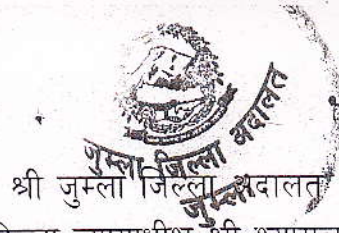 जुम्ला जिल्ला अदालत
जुम्ला
श्री जुम्ला जिल्ला अदालत